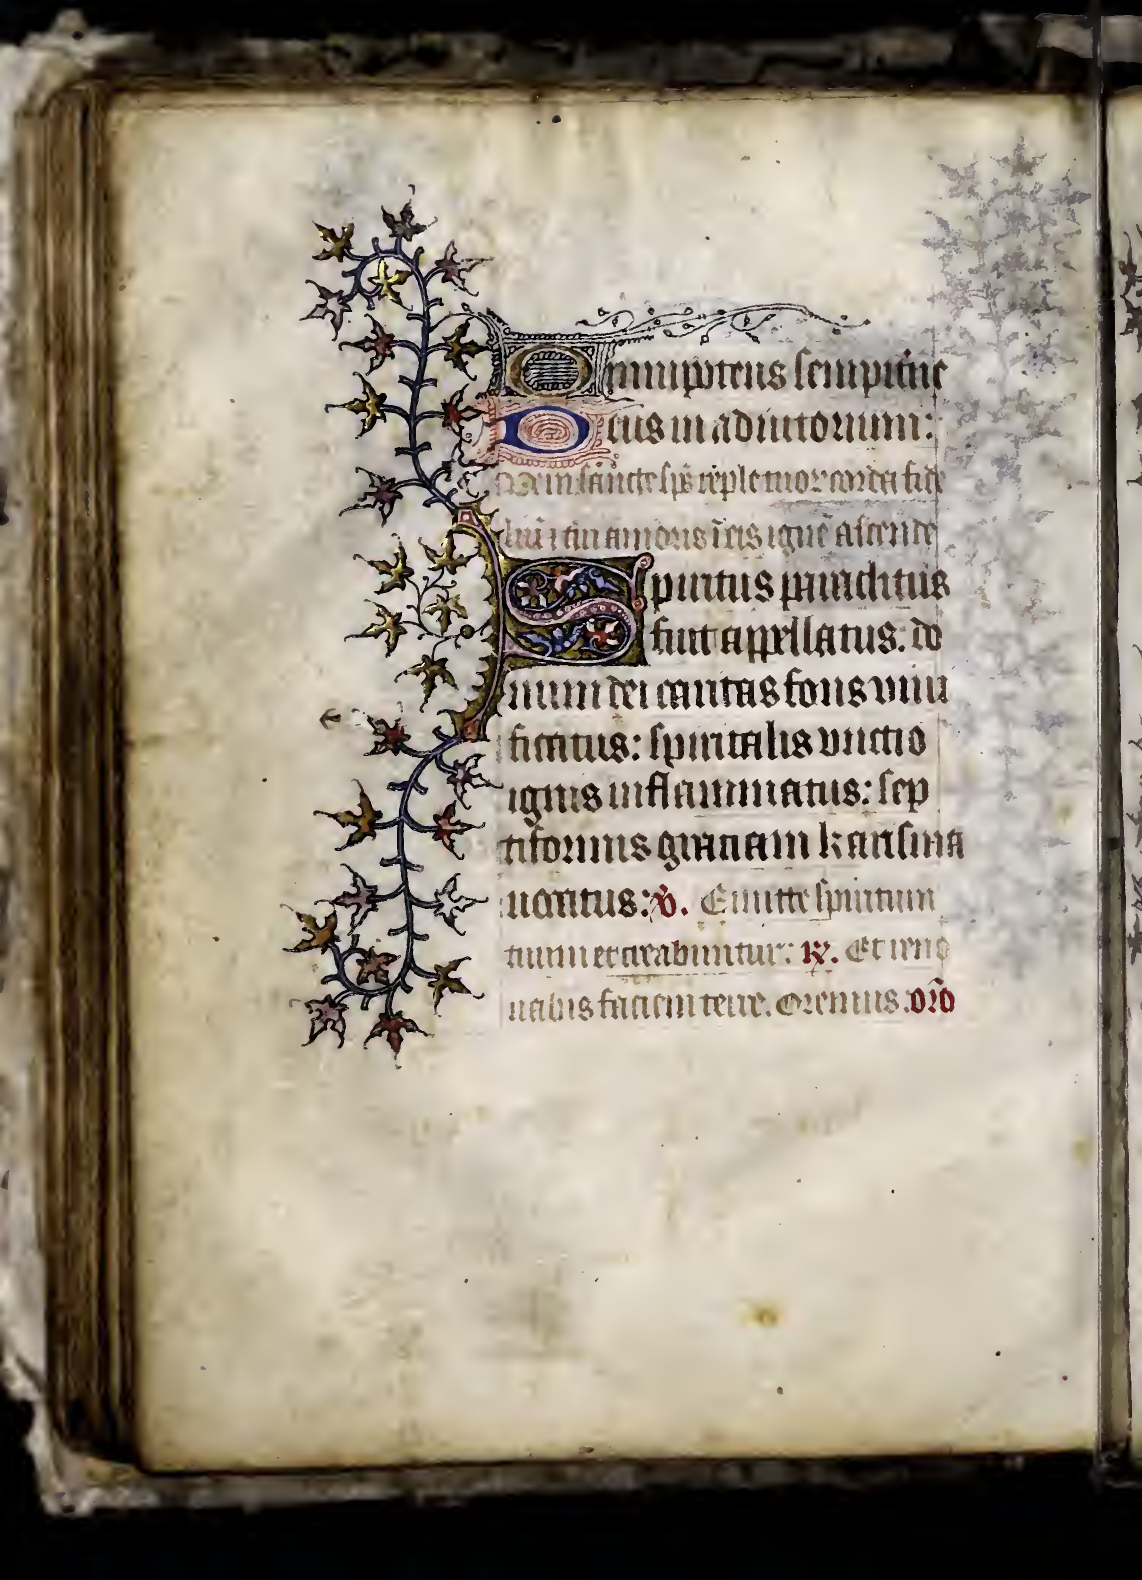 Omnipotens sempiterne
Deus in adiutorium:
Veni sancte sp̄s reple tuor corda fide
liū ⁊ tui amoris ī eis ignē ascende
Spiritus paraclitus
fuit appellatus: do
num dei caritas fons viui
ficatus: spiritalis vnctio
ignis inflammatus: sep
tiformis gratiam karisma
uocitus: v̄. Emitte spiritum
tuum et creabuntur: R̄. Et reno
uabis faciem terre. Oremus. or̄o